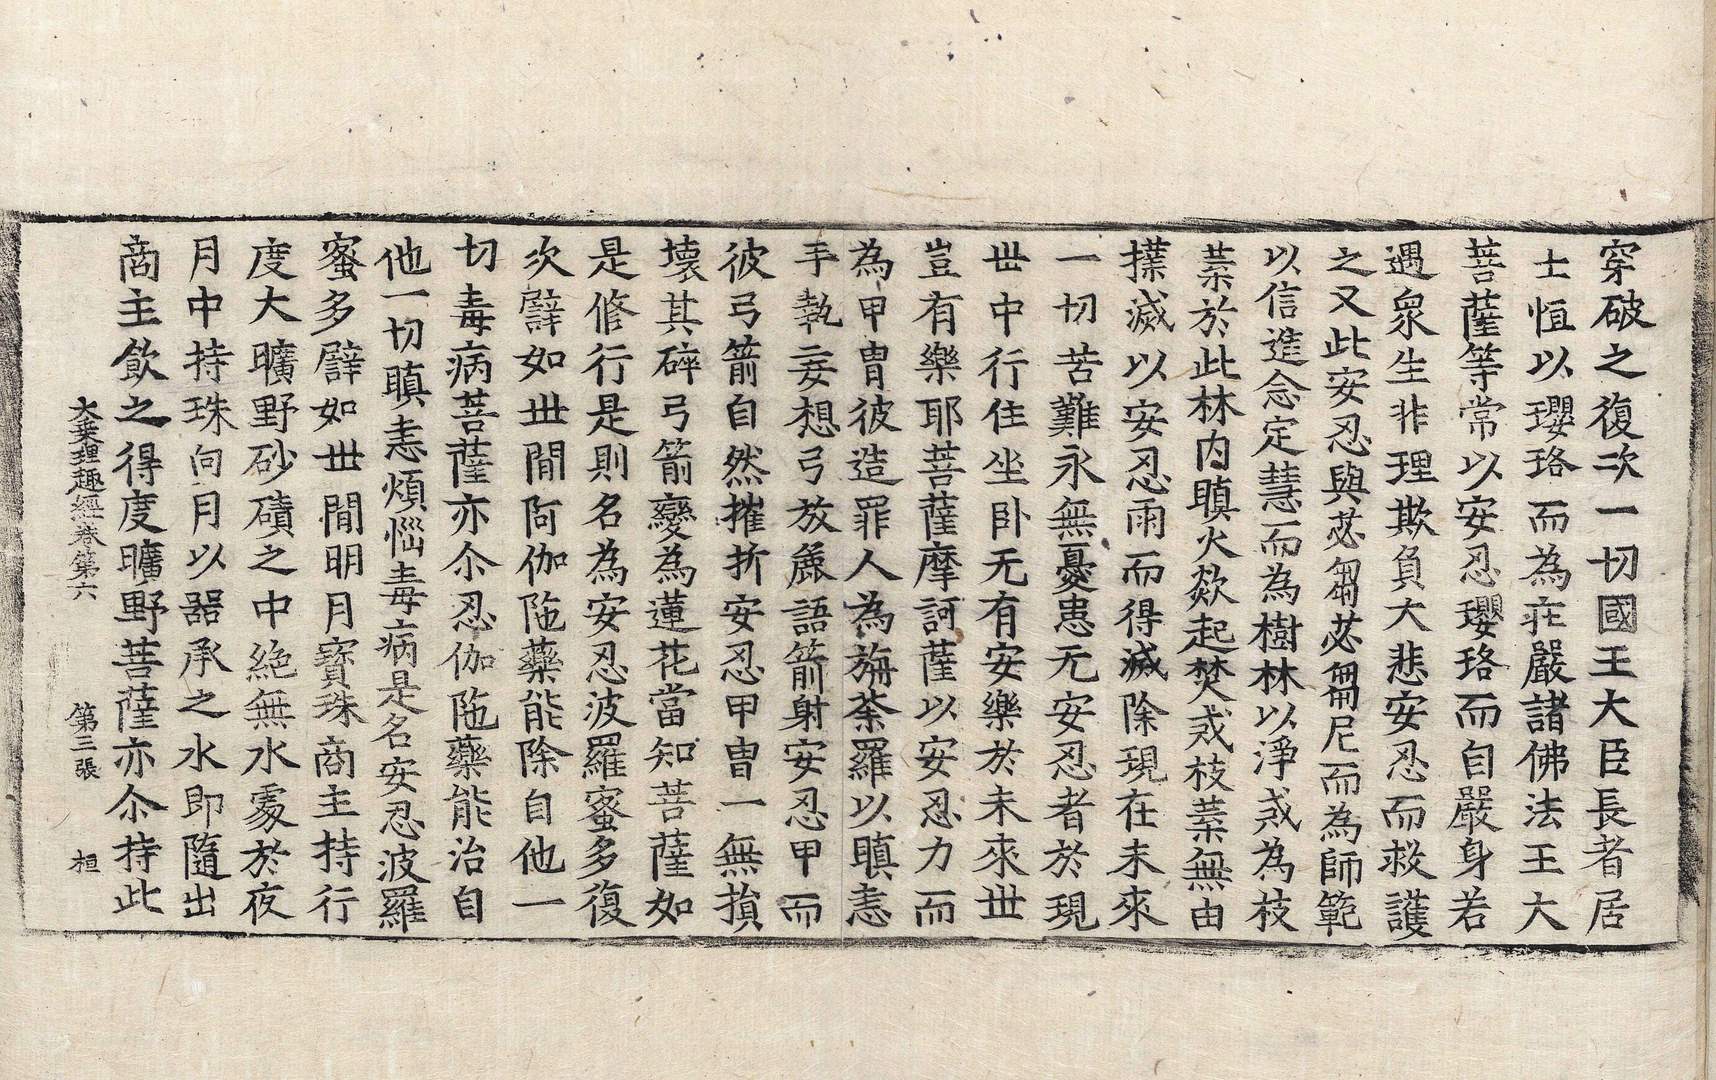 穿破之復次一切國王大臣長者居
士恒以瓔珞而為莊嚴諸佛法王大
菩薩等常以安忍瓔珞而自嚴身若
遇衆生非理欺負大悲安忍而救護
之又此安忍與苾芻苾芻尼而為師範
以信進念定慧而為樹林以淨戒為枝
葉於此林内瞋火欻起焚戒枝葉無由
撲滅以安忍雨而得滅除現在未來
一切苦難永無憂患无安忍者於現
世中行住坐卧无有安樂於未來世
豈有樂耶菩薩摩訶薩以安忍力而
為甲胄彼造罪人為旃荼羅以瞋恚
手執妄想弓放麁語箭射安忍甲而
彼弓箭自然摧折安忍甲胄一無損
壞其碎弓箭變為蓮花當知菩薩如
是修行是則名為安忍波羅蜜多復
次譬如世間阿伽陁藥能除自他一
切毒病菩薩亦尒忍伽陁藥能治自
他一切瞋恚煩惱毒病是名安忍波羅
蜜多譬如世間明月寶珠商主持行
度大曠野砂磧之中絶無水處於夜
月中持珠向月以器承之水即隨出
商主飲之得度曠野菩薩亦尒持此
大乘理趣經卷第六 第三張 桓